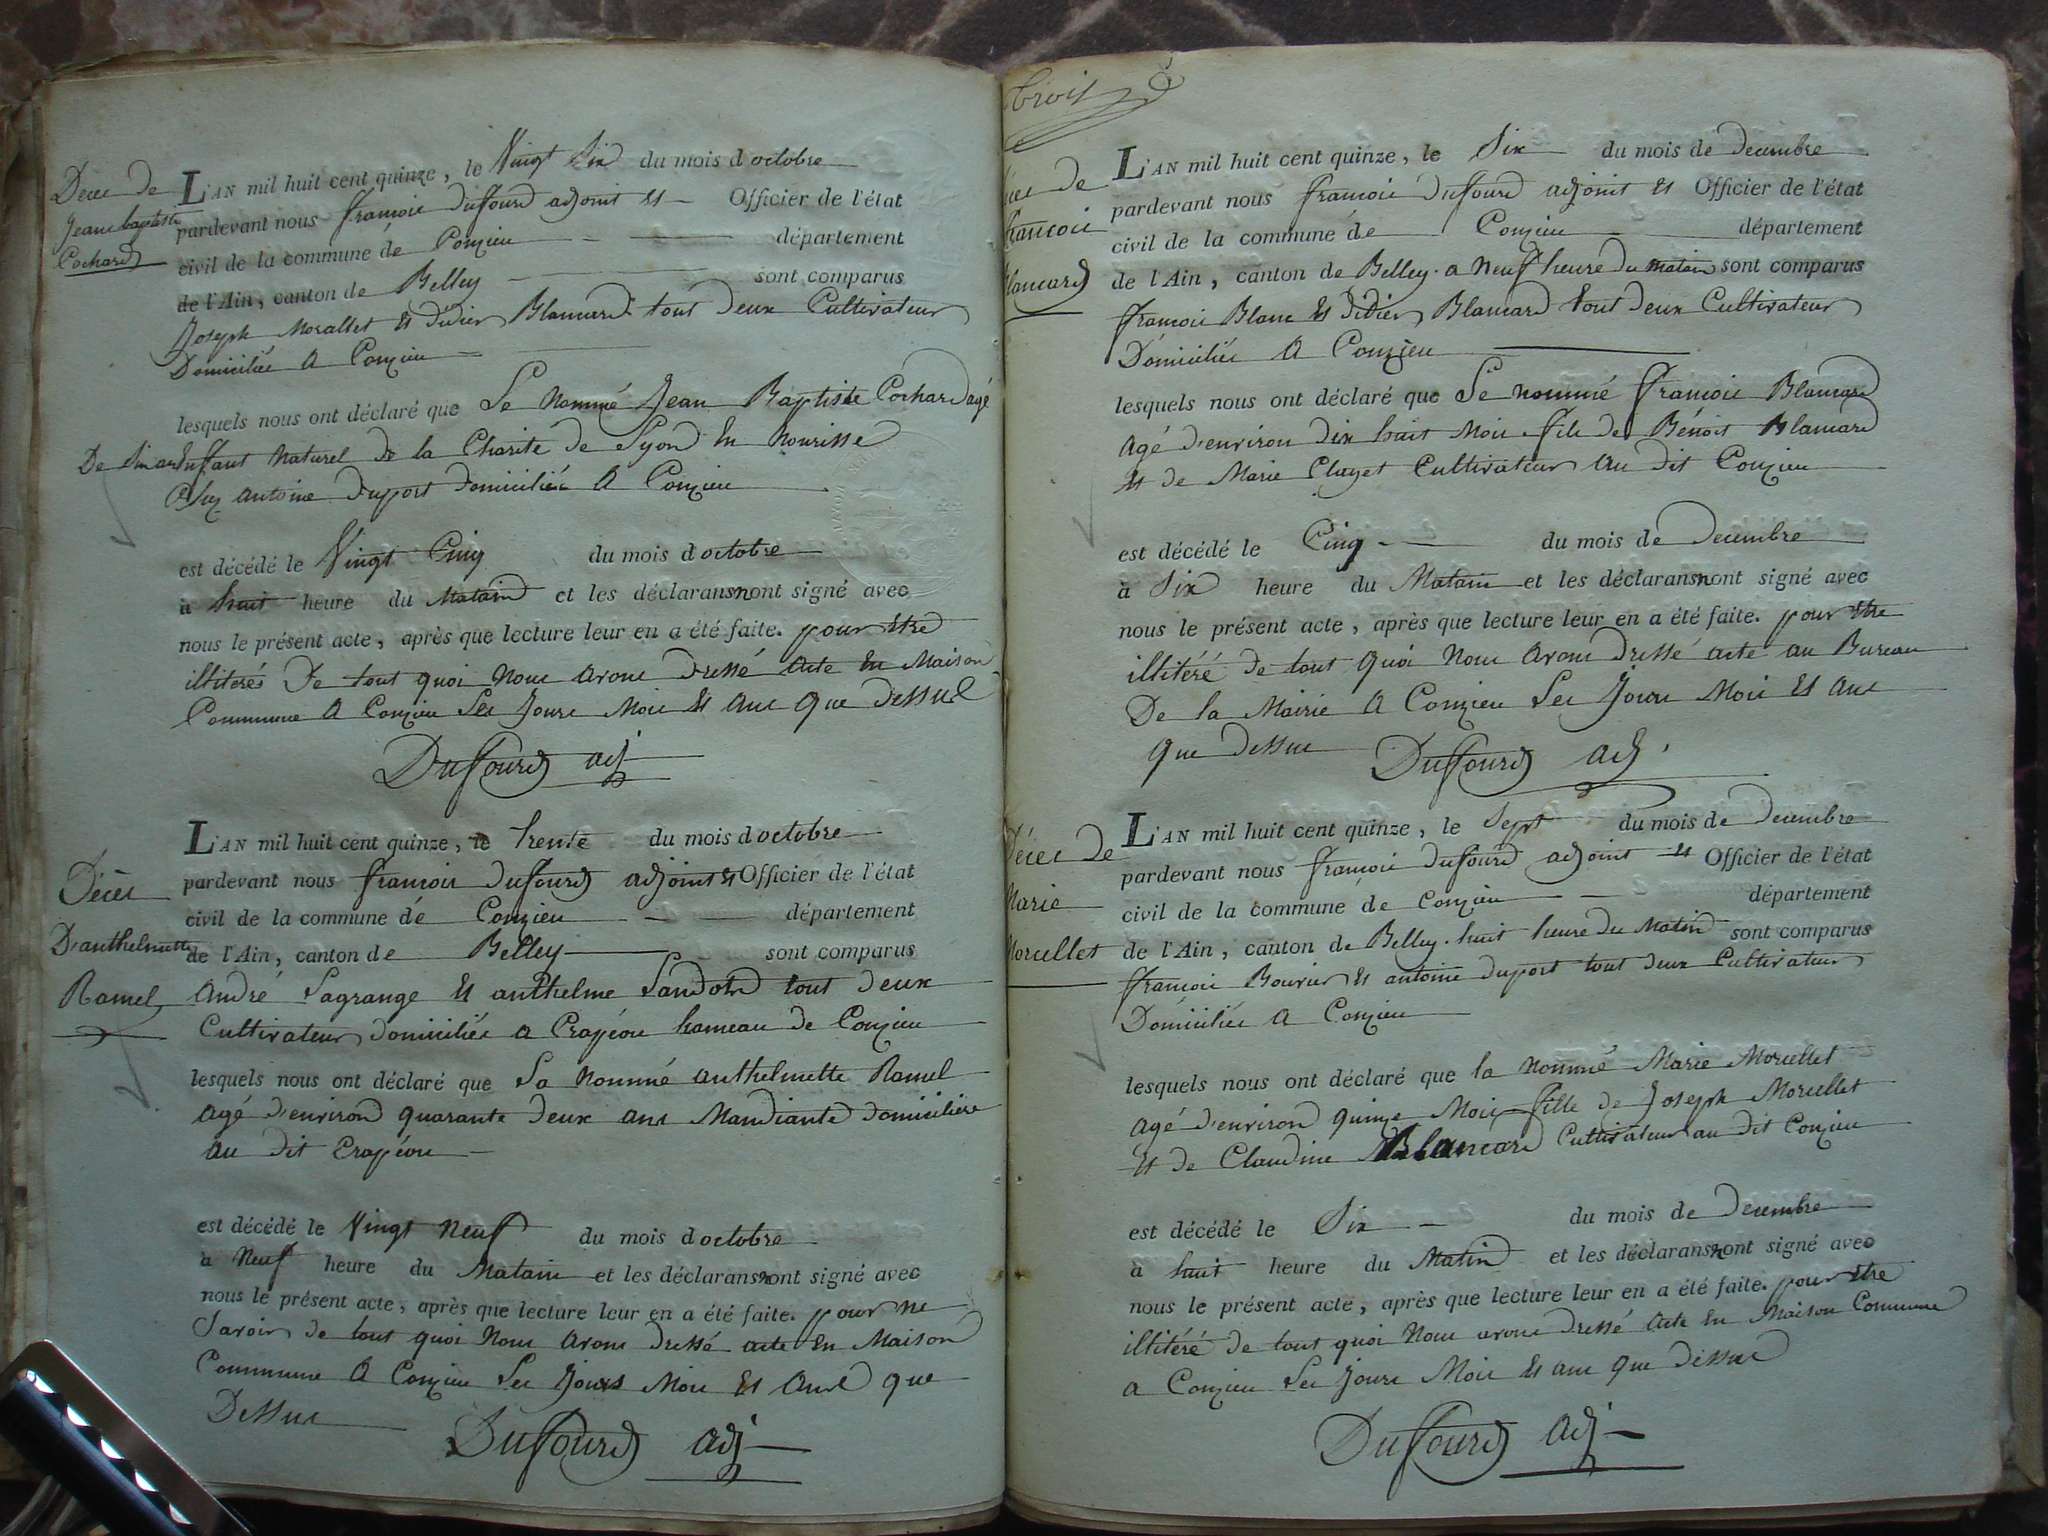 Deces de
Jean baptiste
Cochard
L'AN mil huit cent quinze, le Vingt Six du mois d octobre
pardevant nous francois Duffourd adjoint et Officier de l'état
civil de la commune de Conzieu département
de l'Ain, canton de Belley sont comparus
Joseph Morallet et didier Blancard tout deux Cultivateur
Domiciliés A Conzieu
lesquels nous ont déclaré que Le Nommé Jean Baptiste Cochard agé
De Six ans Enffant Naturel de la Charité de Lyon En Nourisse
Chez antoine duport domicilié A Conzieu
est décédé le Vingt Cinq du mois d octobre
à huit heure du Matain et les déclarans nont signé avec
nous le présent acte, après que lecture leur en a été faite. pour etre
illitérés De tout quoi Nous avons dressé acte En Maison
Commune A Conzieu Les Jours Mois Et Ans Que Dessus
Duffourd adj
Décès
D'anthelmette
Ramel
L'AN mil huit cent quinze, le trente du mois d octobre
pardevant nous francois duffourd adjoint et Officier de l'état
civil de la commune de Conzieu département
de l'Ain, canton de Belley sont comparus
André Lagrange Et anthelme Landord tout deux
Cultivateur domiciliés a Crapéou hameau de Conzieu
lesquels nous ont déclaré que La Nommé anthelmette Ramel
agé d'environ quarante deux ans Mandiante domicilière
au dit Crapéou
est décédé le Vingt Neuf du mois d octobre
à Neuf heure du Matain et les déclarans nont signé avec
nous le présent acte, après que lecture leur en a été faite. pour ne
Savoir de tout quoi Nous avons dressé acte En Maison
Commune A Conzieu Les Jours Mois Et Ans que
Dessus
Duffourd adj
trois
Deces de
francois
Blancard
L'AN mil huit cent quinze, le Six du mois de decembre
pardevant nous francois duffourd adjoint et Officier de l'état
civil de la commune de Conzieu département
de l'Ain, canton de Belley. a Neuf heure du matain sont comparus
francois Blanc Et didier Blancard tout deux Cultivateur
Domiciliés A Conzieu
lesquels nous ont déclaré que Le nommé francois Blancard
Agé d'environ dix huit Mois fils de Bénoit Blancard
Et de Marie Clayet Cultivateur Au dit Conzieu
est décédé le Cinq du mois de Decembre
à Six heure du Matain et les déclarans nont signé avec
nous le présent acte, après que lecture leur en a été faite. pour etre
illitéré de tout quoi Nous avons dressé acte au Bureau
De la Mairie A Conzieu Les Jours Mois Et Ans
Que dessus Duffourd adj
Décés de
Marie
Morcellet
L'AN mil huit cent quinze, le Sept du mois de Decembre
pardevant nous francois duffourd adjoint et Officier de l'état
civil de la commune de Conzieu département
de l'Ain, canton de Belley. huit heure du Matin sont comparus
francois Bouvier Et antoine duport tout deux Cultivateur
Domiciliés A Conzieu
lesquels nous ont déclaré que la Nommé Marie Morcellet
Agé d'environ quinze Mois fille de Joseph Morcellet
Et de Claudine Blancard Cultivateur au dit Conzieu
est décédé le Six du mois de Decembre
à huit heure du Matin et les déclarans nont signé avec
nous le présent acte, après que lecture leur en a été faite. pour etre
illitéré de tout quoi Nous avons dressé acte En Maison Commune
A Conzieu Les Jours Mois Et ans que dessus
Duffourd adj